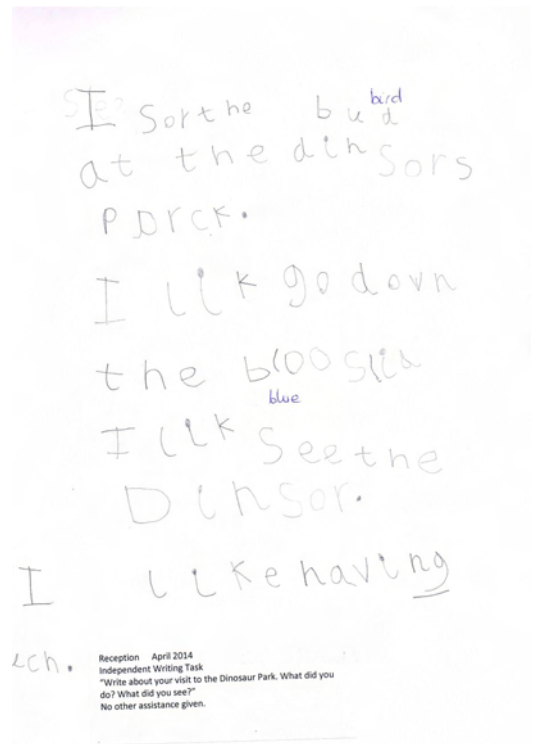 I Sorthe bud bird
at the dinsors
Porck.
I lik go down
the bloo Slid
blue
I lik See the
Dinsor.
I like having
ech.
Reception April 2014
Independent Writing Task
"Write about your visit to the Dinosaur Park. What did you
do? What did you see?"
No other assistance given.